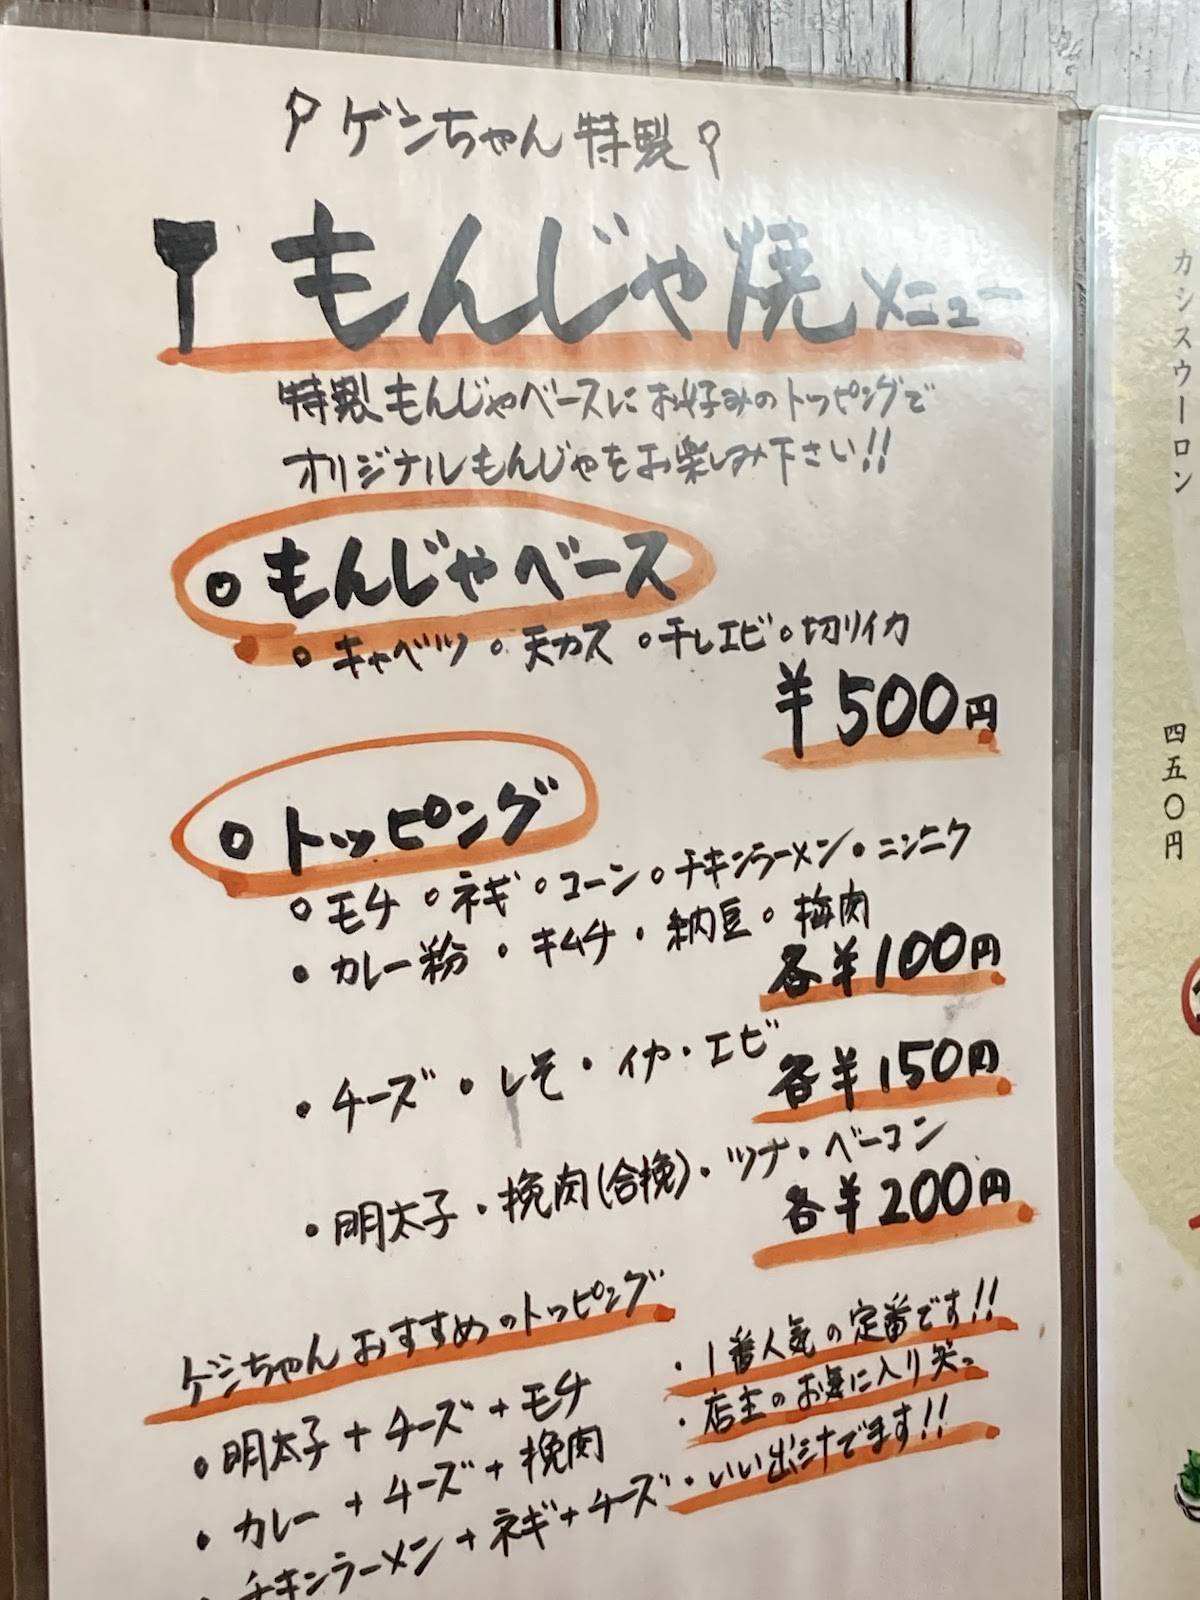 ゲンちゃん特製
もんじゃ焼メニュー
特製もんじゃベースにお好みのトッピングで
オリジナルもんじゃをお楽しみ下さい!!
○もんじゃベース
○キャベツ○天カス○干しエビ○切りイカ
¥500円
○トッピング
○モチ○ネギ○コーン○チキンラーメン・ニンニク
・カレー粉・キムチ・納豆○梅肉
各¥100円
・チーズ・しそ・イカ・エビ
各¥150円
・明太子・挽肉(合挽)・ツナ・ベーコン
各¥200円
ゲンちゃんおすすめのトッピング
・明太子+チーズ+モチ
・1番人気の定番です!!
・カレー+チーズ+挽肉
・店主のお気に入り笑っ
・チキンラーメン+ネギ+チーズ
・いい出汁でます!!
カシスウーロン
四五〇円